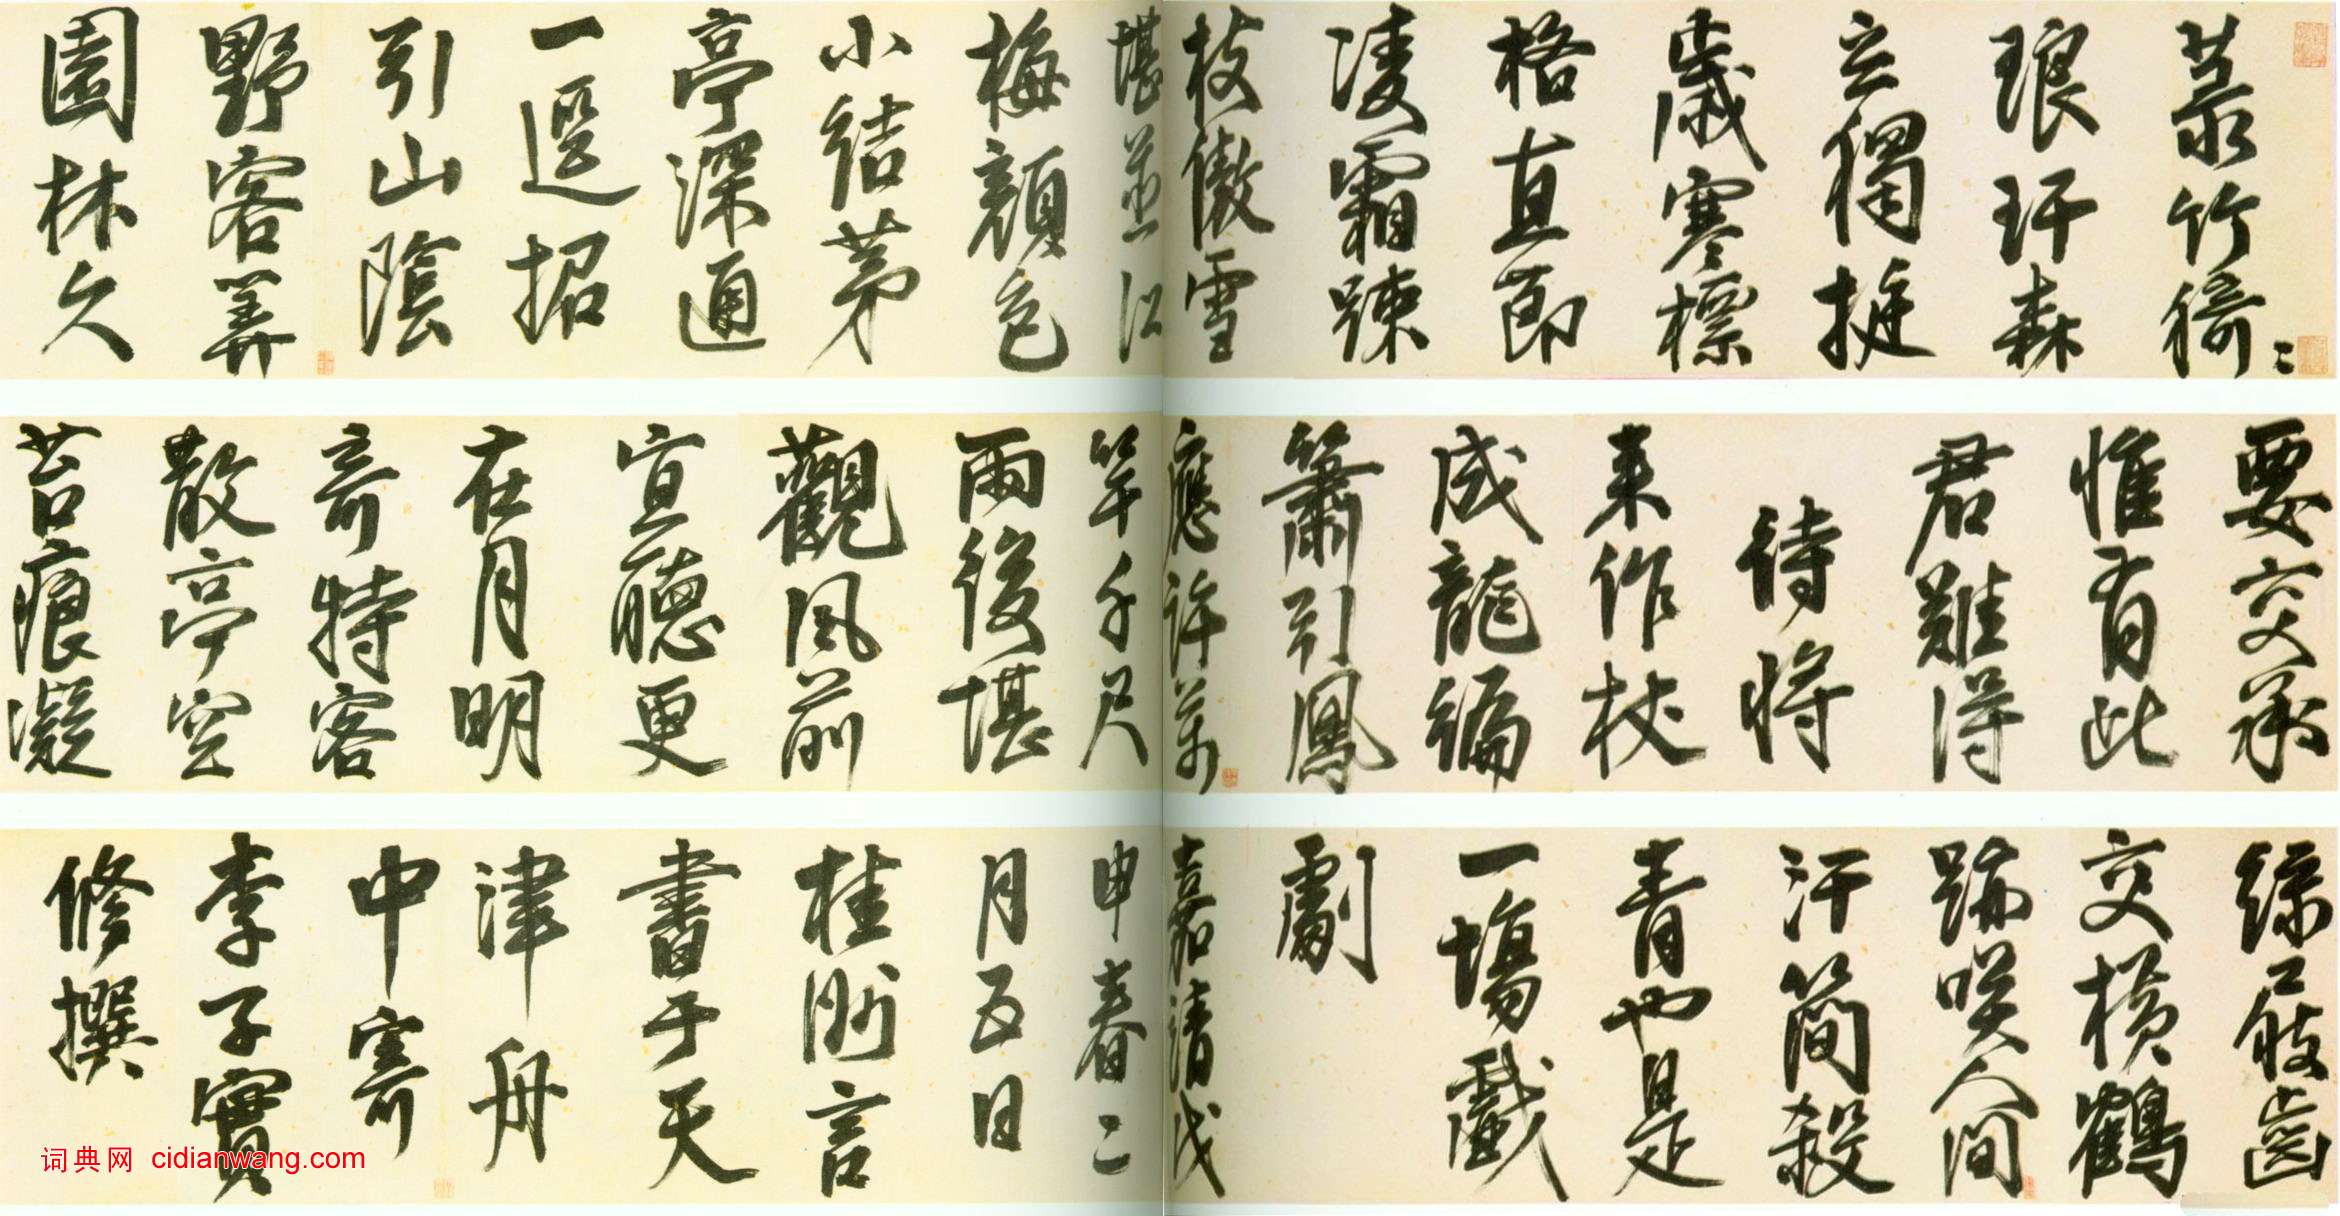 菉竹猗〻
琅玕森
立獨挺
歲寒標
格直節
凌霜踈
枝傲雪
堪並江
梅顏色
小結茅
亭深通
一逕招
引山陰
野客筭
園林久
要交承
惟有此
君難得
待將
来作杖
成龍編
簫引鳳
應許萬
竿千尺
雨後堪
觀風前
宜聽更
在月明
竒特客
散亭空
苔痕凝
綠屐齒
交橫鶴
跡咲人間
汗簡殺
青也是
一場戲
劇
嘉靖戊
申春二
月五日
桂洲言
書于天
津舟
中寄
李子實
修撰
词典网 cidianwang.com